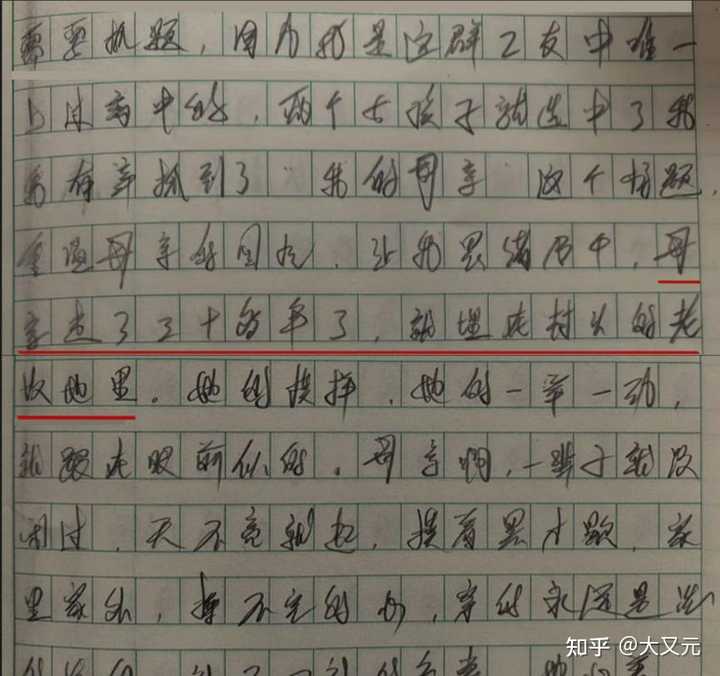 需要抓题，因为我是这群工友中唯一
上过高中的，两个女孩子就选中了我
我有幸抓到了 我的母亲 这个标题，
重温母亲的，让我思绪万千，母
亲走了三十的年了，就埋在村头的老
坟地里。她的模样，她的一举一动，
就跟在眼前似的。母亲啊，一辈子就没
闲过，天不亮就起，摸着黑才歇，家
里家外，操不完的心，穿的永远是洗
知乎 @大又元